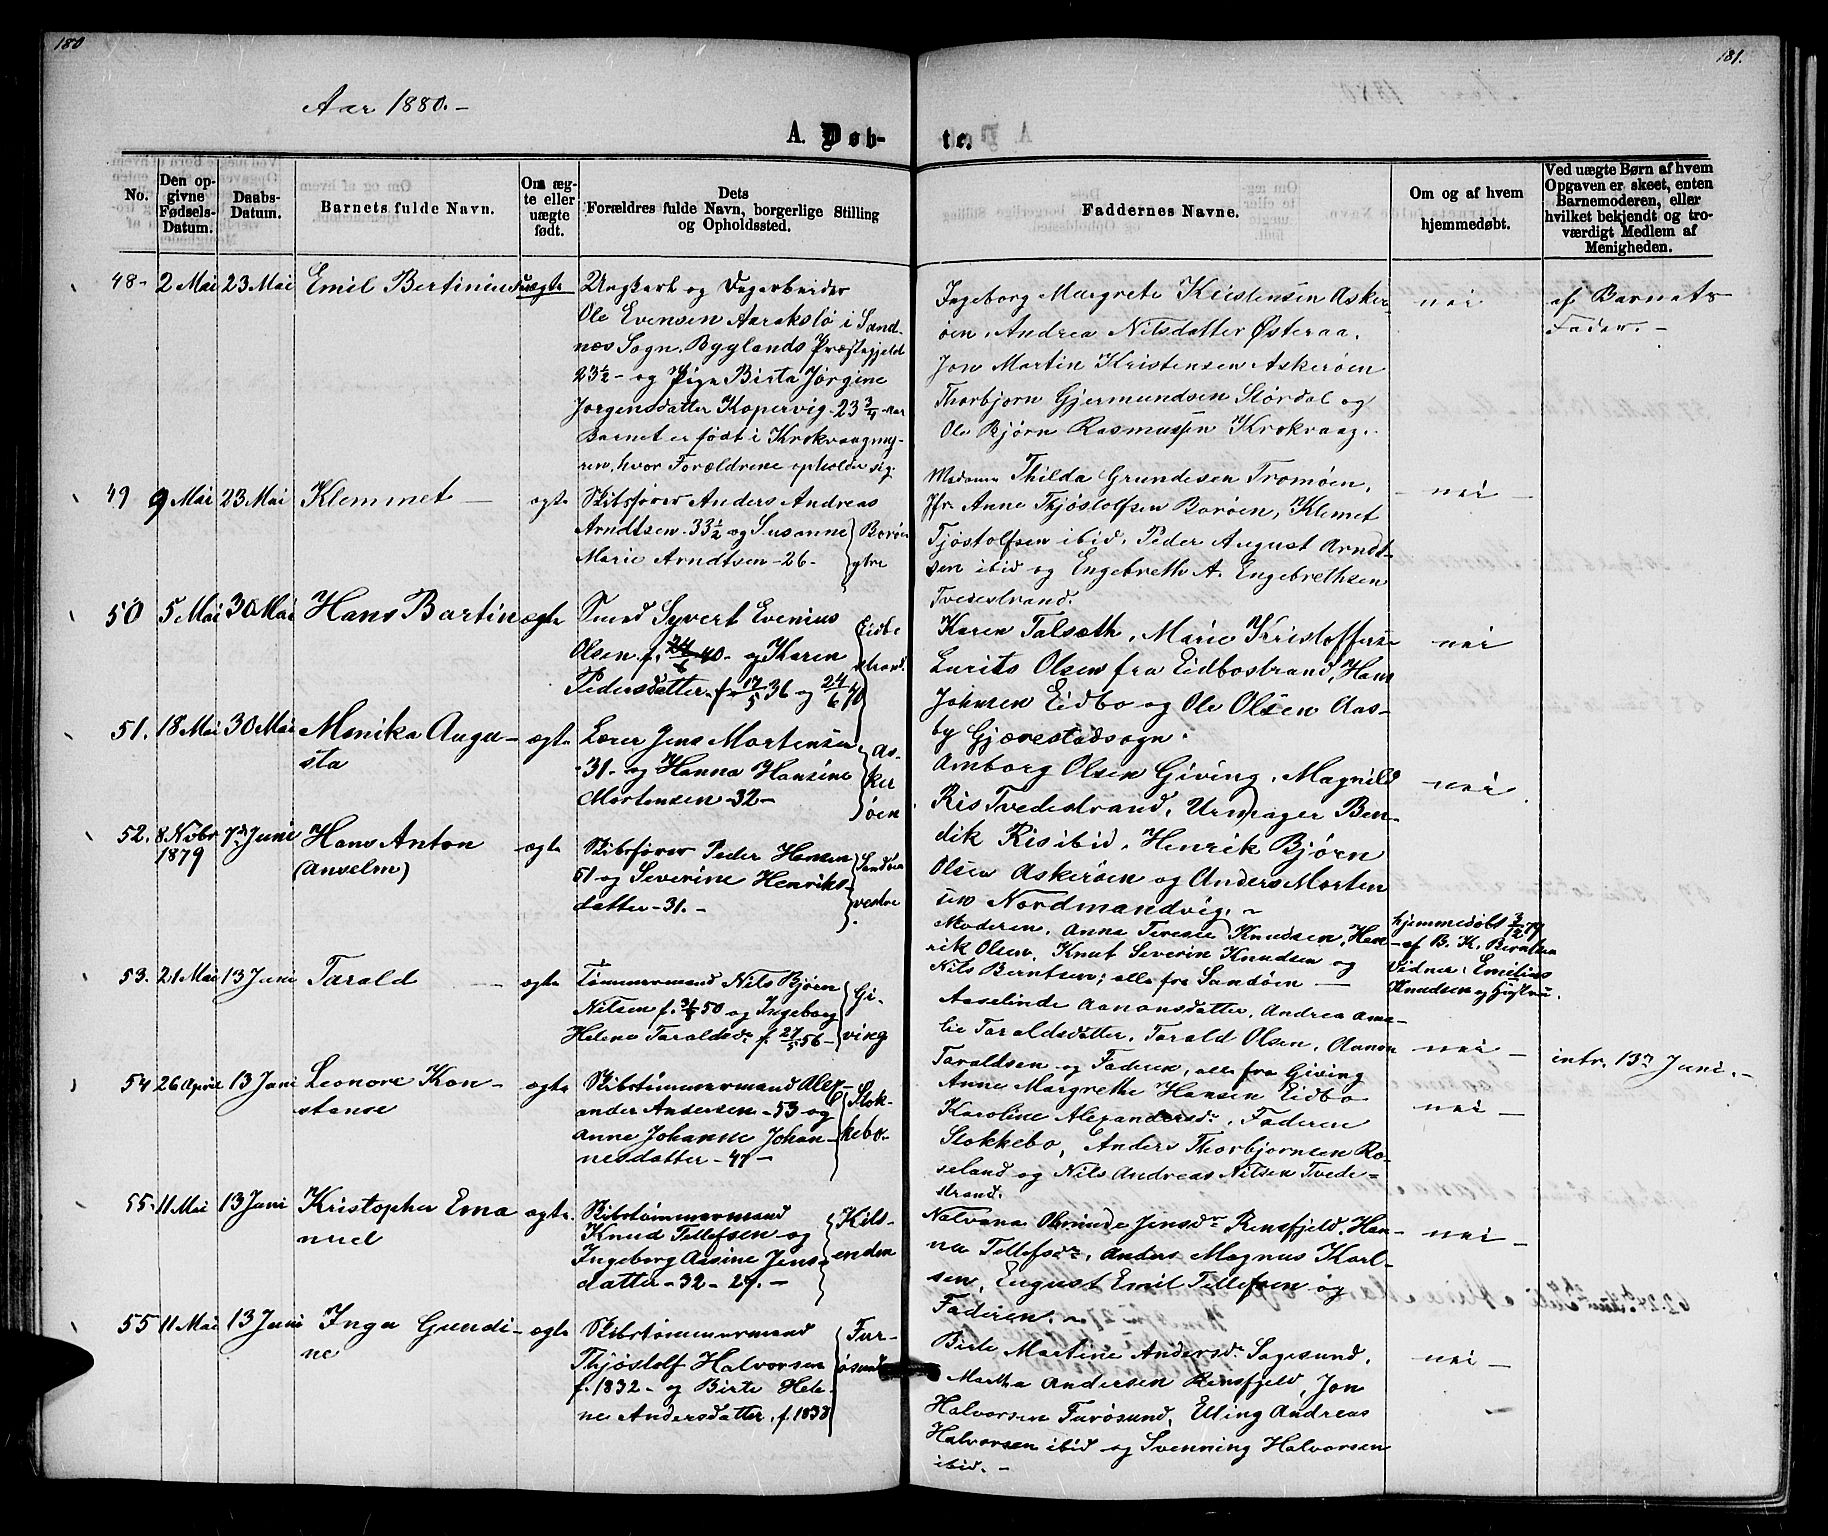 180
181.
Aar 1880.-
A. Døb-
te.
No.
Den op-
givne
Fødsels-
Datum.
Daabs-
Datum.
Barnets fulde Navn.
Om æg-
te eller
uægte
født.
Dets
Forældres fulde Navn, borgerlige Stilling
og Opholdssted.
Faddernes Navne.
Om og af hvem
hjemmedøbt.
Ved uægte Børn af hvem
Opgaven er skeet, enten
Barnemoderen, eller
hvilket bekjendt og tro-
værdigt Medlem af
Menigheden.
48- 2 Mai 23 Mai Emil Bertinius uægte
Ungkarl og Dagarbeider
Ole Evensen Aarakslö i Sand-
næs Sogn, Byglands Præstegjeld
23½- og Pige Birta Jørgine
Jørgensdatter Kopervig-23 3/4-Aar
Barnet er født i Krokvaagmy-
ren, hvor Forældrene opholder sig.
Ingeborg Margrete Kristensen Asker-
øen, Andrea Nilsdatter Østeraa,
Jon Martin Kristensen Askerøen
Thorbjørn Gjermundsen Størdal og
Ole Bjørn Rasmussen Krokvaag.
nei
af Barnets
Fader.-
49 9 Mai 23 Mai Klemmet - ægte
Skibsfører Anders Andreas
Arndtsen-33½ og Susanne
Marie Arndtsen-26-
Borøen
ytre
Madame Thilda Grundesen Tromøen,
Jfr Anne Thjøstolfsen Borøen, Klemet
Tjøstolfsen ibid, Peder August Arndt-
sen ibid og Engebreth A. Engebrethsen
Tvedestrand.
- nei -
50 5 Mai 30 Mai Hans Bartin ægte
Smed Syvert Evenius
Olsen f. 24/6 40- og Karen
Pedersdatter-f. 17/5 36 og 24/6 40
Eidbo
strand.
Karen Talsæth, Marie Kristoffersen
Lurits Olsen fra Eidbostrand, Hans
Johnsen Eidbo og Ole Olsen Aas-
by Gjærestadsogn.
nei
51. 18 Mai 30 Mai Monika Augu-
sta
ægte
Lærer Jens Mortensen
-31- og Hanna Hansine
Mortensen-32-
As-
ker
øen
Amborg Olsen Giving, Magnild
Ris Tvedestrand, Urmager Ben-
dik Ris ibid, Henrik Bjørn
Olsen Askerøen og Anders Morten
sen Nordmandvig.-
-nei.
52. 8 Nobr 7de Juni Hans Anton
1879
(Anselm)
ægte
Skibsfører Peder Hansen
51- og Severine Henriks-
datter-31.-
Sandøen
vestre
Moderen, Anna Teresie Knudsen, Hen-
rik Olsen, Knut Severin Knudsen og
Nils Berntsen; alle fra Sandøen -
hjemmedøbt 3/12 79
-af B. K. Berntsen
Vidner: Emilius
Knudsen og Hustru.
53. 21 Mai 13 Juni Tarald - ægte
Tømmermand Nils Bjørn
Nilsen f. 3/8 50 og Ingeborg
Helene Taraldsdr f. 27/5 56-
Gi-
ving
Aaselinde Aanonsdatter, Andrea Ama-
lie Taraldsdatter, Tarald Olsen, Aanon
Taraldsen og Faderen, alle fra Giving
nei -
intr. 13de Juni.-
54 26 April 13 Juni Leonore Kon-
stanse
ægte
Skibstømmermand Alex-
ander Andersen-53 og
Anne Johanne Johan-
nesdatter-47-
Stok-
kebo-
Anne Margrethe Hansen Eidbo
Karoline Alexandersdr, Faderen
Stokkebo, Anders Thorbjørnsen Ro-
seland og Nils Andreas Nilsen Tvede-
strand.
nei -
55- 11 Mai 13 Juni Kristopher Ema
nuel
ægte.
Skibstømmermand
Knud Tellefsen og
Ingeborg Aasine Jens-
datter-32-27.-
Kils-
enden
Natvana Olminde Jensdr Rensfjeld, Han-
na Tellefsdr, Anders Magnus Karl-
sen, August Emil Tellefsen og
Faderen.-
nei -
55 11 Mai 13 Juni Inga Gundi-
ne
ægte
Skibstømmermand
Thjøstolf Halvorsen
f. 1832- og Birte Hele-
ne Andersdatter, f. 1838
Fur-
øsund
Birte Martine Andersdr Sagesund,
Martha Andersen Rensfjeld, Jon
Halvorsen Furøsund, Elling Andreas
Halvorsen ibid og Svenning Halvorsen
ibid.-
nei -